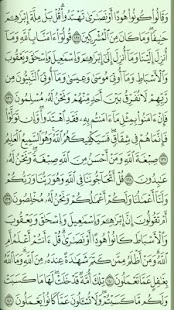 وَقَالُوا۟ كُونُوا۟ هُودًا أَوْ نَصَٰرَىٰ تَهْتَدُوا۟ ۗ قُلْ بَلْ مِلَّةَ إِبْرَٰهِۦمَ
حَنِيفًا ۖ وَمَا كَانَ مِنَ ٱلْمُشْرِكِينَ ١٣٥ قُولُوٓا۟ ءَامَنَّا بِٱللَّهِ وَمَآ
أُنزِلَ إِلَيْنَا وَمَآ أُنزِلَ إِلَىٰٓ إِبْرَٰهِۦمَ وَإِسْمَٰعِيلَ وَإِسْحَٰقَ وَيَعْقُوبَ
وَٱلْأَسْبَاطِ وَمَآ أُوتِىَ مُوسَىٰ وَعِيسَىٰ وَمَآ أُوتِىَ ٱلنَّبِيُّونَ مِن
رَّبِّهِمْ لَا نُفَرِّقُ بَيْنَ أَحَدٍ مِّنْهُمْ وَنَحْنُ لَهُۥ مُسْلِمُونَ ١٣٦
فَإِنْ ءَامَنُوا۟ بِمِثْلِ مَآ ءَامَنتُم بِهِۦ فَقَدِ ٱهْتَدَوا۟ ۖ وَّإِن تَوَلَّوْا۟
فَإِنَّمَا هُمْ فِى شِقَاقٍ ۖ فَسَيَكْفِيكَهُمُ ٱللَّهُ ۚ وَهُوَ ٱلسَّمِيعُ ٱلْعَلِيمُ ١٣٧
صِبْغَةَ ٱللَّهِ ۖ وَمَنْ أَحْسَنُ مِنَ ٱللَّهِ صِبْغَةً ۖ وَنَحْنُ لَهُۥ
عَٰبِدُونَ ١٣٨ قُلْ أَتُحَآجُّونَنَا فِى ٱللَّهِ وَهُوَ رَبُّنَا وَرَبُّكُمْ
وَلَنَآ أَعْمَٰلُنَا وَلَكُمْ أَعْمَٰلُكُمْ وَنَحْنُ لَهُۥ مُخْلِصُونَ ١٣٩
أَمْ تَقُولُونَ إِنَّ إِبْرَٰهِۦمَ وَإِسْمَٰعِيلَ وَإِسْحَٰقَ وَيَعْقُوبَ
وَٱلْأَسْبَاطَ كَانُوا۟ هُودًا أَوْ نَصَٰرَىٰ ۗ قُلْ ءَأَنتُمْ أَعْلَمُ أَمِ ٱللَّهُ ۗ
وَمَنْ أَظْلَمُ مِمَّن كَتَمَ شَهَٰدَةً عِندَهُۥ مِنَ ٱللَّهِ ۗ وَمَا ٱللَّهُ
بِغَٰفِلٍ عَمَّا تَعْمَلُونَ ١٤٠ تِلْكَ أُمَّةٌ قَدْ خَلَتْ ۖ لَهَا مَا كَسَبَتْ
وَلَكُم مَّا كَسَبْتُمْ ۖ وَلَا تُسْـَٔلُونَ عَمَّا كَانُوا۟ يَعْمَلُونَ ١٤١